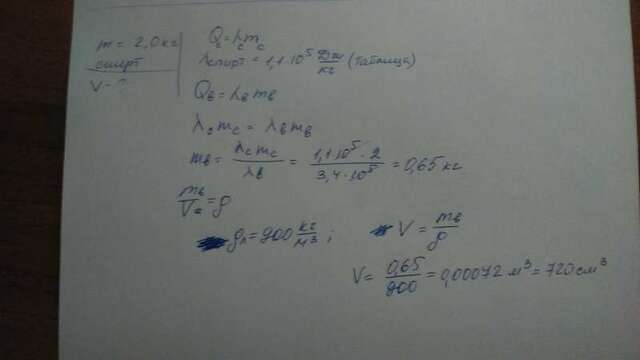 m = 2,0 кг
спирт
V - ?
Qc = λc mc
λспирт = 1,1 · 10⁵ Дж/кг (таблица)
Qв = λв mв
λc mc = λв mв
mв = λc mc / λв = 1,1 · 10⁵ · 2 / 3,4 · 10⁵ = 0,65 кг
mв / Vв = ρ
ρл = 900 кг/м³ ; V = mв / ρ
V = 0,65 / 900 = 0,00072 м³ = 720 см³